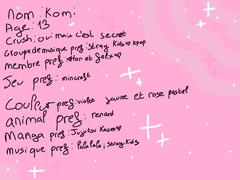 Nom : Komi
Age : 13
Crush: oui mais c'est secret
Groupe de musique pref: Stray Kids ♡ kpop
membre pref: Han et Felix ♡
Jeu pref: mincraft
Couleur pref: violet jaune et rose pastel
animal pref: renard
Manga pref: Jujutsu Kaisen ♡
musique pref: Lalalala, stray kids